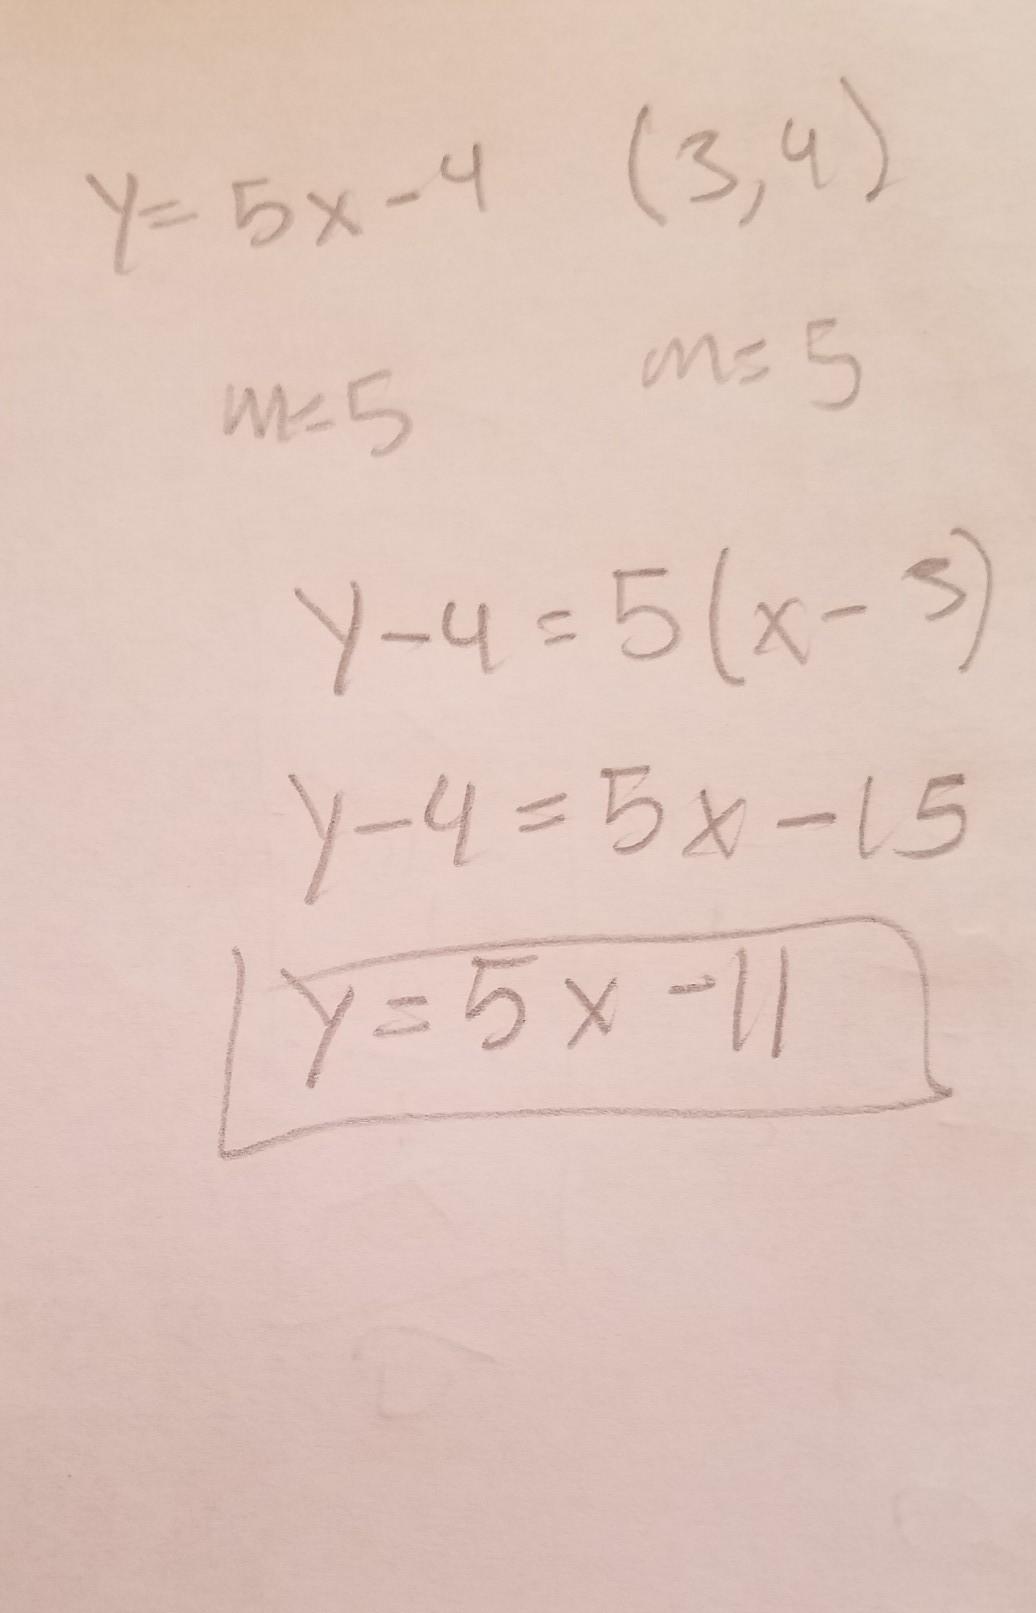 y = 5x - 4 (3, 4)
m = 5 m = 5
y - 4 = 5(x - 3)
y - 4 = 5x - 15
y = 5x - 11